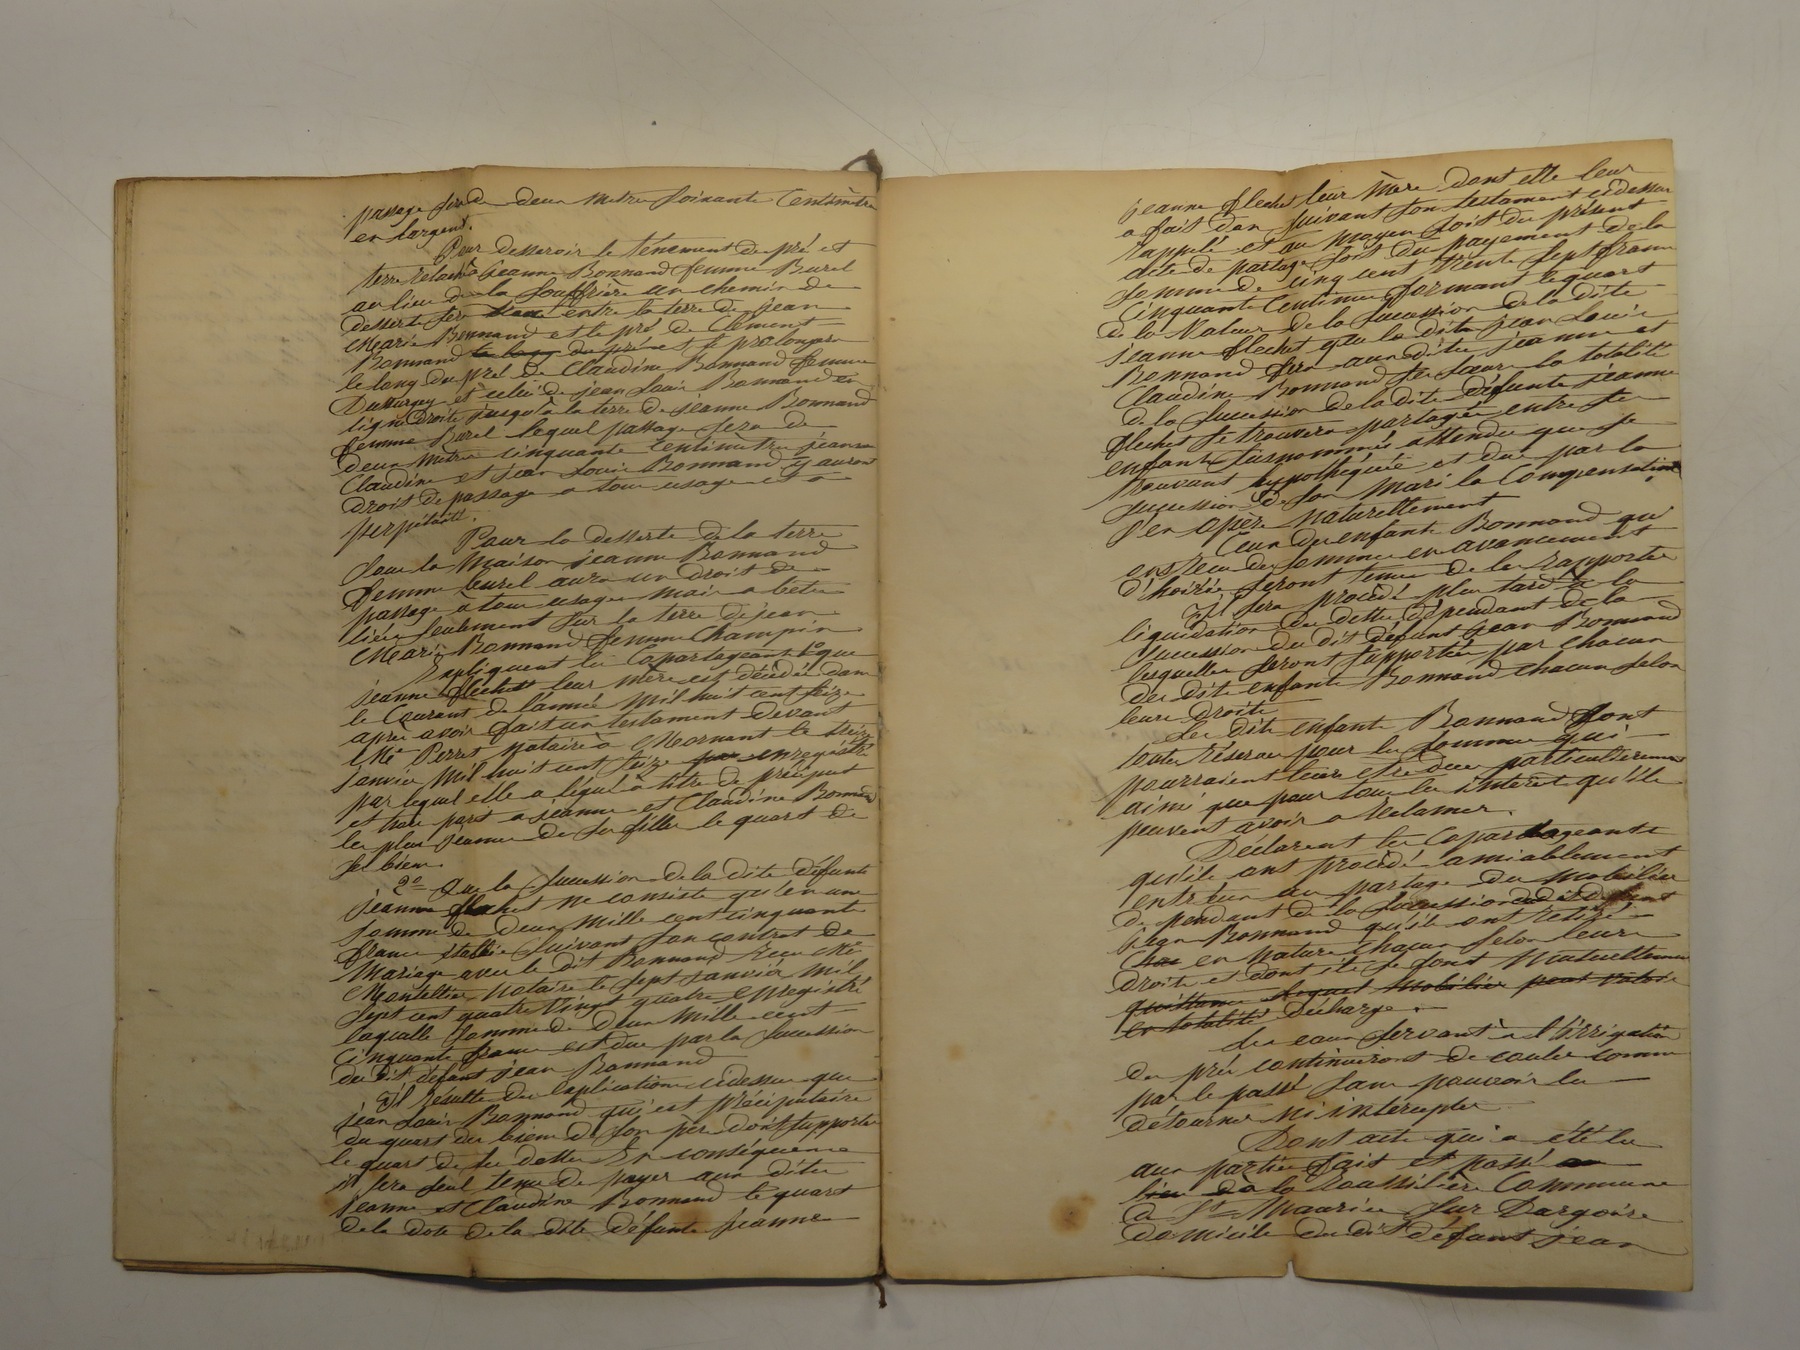 passage sera de deux metres soixante Centimètres
en largeur.
Pour desservir le tenement de pré et
terre relaché à jeanne Bonnand femme Burel
au lieu de la Souffrière un chemin de
desserte sera entre la terre de jean
Marie Bonnand et le pré de Clément
Bonnand le long du pré et se prolongera
le long du pré de Claudine Bonnand femme
Dussurgey et celui de jean Louis Bonnand en
ligne Droite jusqu'à la terre de jeanne Bonnand
femme Burel lequel passage sera de
deux metres cinquante Centimètres jeanne
Claudine et jean Louis Bonnand y auront
droit de passage a tous usages et a
perpétuité.
Pour la desserte de la terre
sous la Maison jeanne Bonnand
femme burel aura un droit de
passage a tous usages mais a bêtes
liées seulement sur la terre de jean
Marie Bonnand femme Champin
Expliquent les Copartageants 1º que
jeanne flechet leur mère est décédée dans
le Courant de l'année Mil huit cent seize
après avoir fait un testament devant
Me Perret notaire à Mornant le treize
janvier Mil huit cent seize enregistré
par lequel elle a légué à titre de préciput
et hors part a jeanne et Claudine Bonnand
les plus jeunes de ses filles le quart de
ses biens.
2º Que la succession de la dite défunte
jeanne flechet ne consiste qu'en une
somme de Deux Mille cent cinquante
francs établie suivant son contrat de
Mariage avec le dit Bonnand Recu Me
Montellier notaire le sept janvier Mil
sept cent quatre vingt quatre enregistré
laquelle somme de Deux Mille cent
Cinquante francs est due par la succession
du dit défunt jean Bonnand
Il résulte des explications cidessus que
jean Louis Bonnand qui est précipuitaire
du quart des biens de son père doit supporter
le quart de ses dettes En conséquence
il sera seul tenu de payer aux dites
jeanne et Claudine Bonnand le quart
de la dote de la dite défunte jeanne
jeanne flechet leur Mère dont elle leur
a fait don suivant son testament cidessus
rappelé et au moyen soit du présent
acte de partage soit du payement de la
somme de cinq cent trente sept francs
cinquante Centimes formant le quart
de la Valeur de la succession de la dite
jeanne flechet que le dit jean Louis
Bonnand fera aux dites jeanne et
Claudine Bonnand ses sœurs la totalité
de la succession de la dite défunte jeanne
flechet se trouvera partagée entre ses
enfants susnommés attendu que se
trouvant hypothéquée et due par la
succession de son Mari la Compensation
s'en opère naturellement
Ceux des enfants Bonnand qui
ont reçu des sommes en avancement
d'hoirie seront tenus de les rapporter
Il sera procédé plus tard à la
liquidation des dettes dépendant de la
succession du dit défunt jean Bonnand
lesquelles seront supportées par chacun
des dits enfants Bonnand chacun selon
leurs droits
Les dits enfants Bonnand font
toutes réserves pour les sommes qui
pourraient leurs etre dues particulièrement
ainsi que pour tous les intérêts qu'ils
peuvent avoir a réclamer.
Déclarent les Copartageants
qu'ils ont procédé amiablement
entr'eux au partage du Mobilier
dependant de la succession dudit défunt
jean Bonnand qu'ils ont retiré
en nature chacun selon leurs
droits et dont ils se font Mutuellement
quittance lequel Mobilier peut valoir
en totalité Décharge.
Les eaux servant à l'irrigation
des prés continueront de couler comme
par le passé sans pouvoir les
détourner ni intercepter
Dont acte qui a été lu
aux parties fait et passé au
lieu de à la Roussilière Commune
de St Maurice sur Dargoire
domicile du dit défunt jean